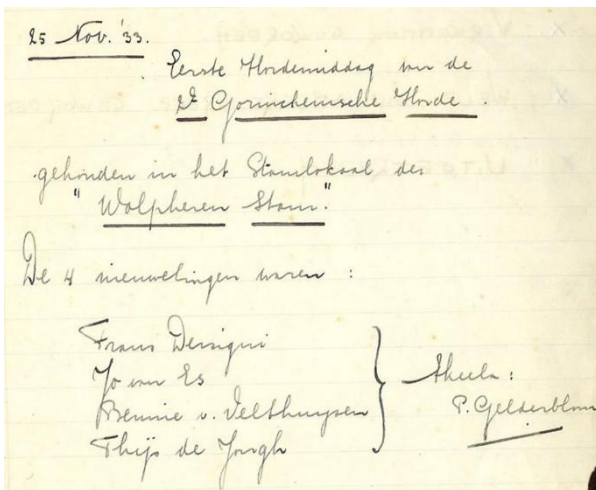 25 Nov. '33.
Eerste Hordemiddag van de
2e Gorinchemsche Horde.
gehouden in het Stamlokaal der
"Wolpheren Stam."
De 4 nieuwelingen waren :
Frans Dersigni
Jo van Es
Bennie v. Velthuysen
Thijs de Jongh
Akela :
P. Gelderblom